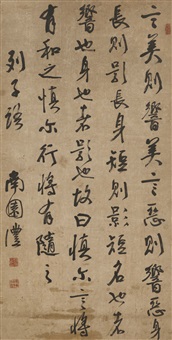 言美則響美言惡則響惡身
長則影長身短則影短名也者
響也身也者影也故曰慎尔言將
有和之慎尔行將有隨之
列子語
南園灃